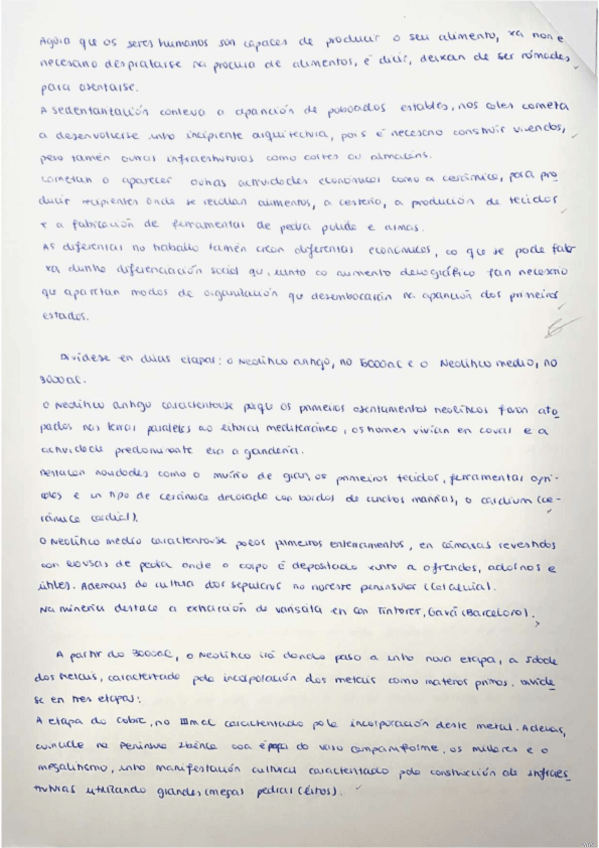 Agora que os seres humanos son capaces de producir o seu alimento, xa non é
necesario desprazarse na procura de alimentos, é dicir, deixan de ser nómades
para asentarse.
A sedentarización conleva a aparición de poboados estables, nos cales comeza
a desenvolverse unha incipiente arquitectura, pois é necesario construir vivendas,
pero tamén outras infraestruturas como cortes ou almacéns.
Comezan a aparecer outras actividades económicas como a cerámica, para pro
ducir recipientes onde se recollan alimentos, a cestería, a produción de tecidos
e a fabricación de ferramentas de pedra pulida e armas.
As diferenzas no traballo tamén crean diferenzas económicas, co que se pode falar
xa dunha diferenciación social que, xunto co aumento demográfico fan necesario
que aparezan modos de organización que desembocarán na aparición dos primeiros
estados.
Divídese en dúas etapas: o Neolítico antigo, no 5000aC e o Neolítico medio, no
3000aC.
O Neolítico antigo caracterízase porque os primeiros asentamentos neolíticos foron ato
pados nas terras paralelas ao litoral mediterráneo, os homes vivían en covas e a
actividade predominante era a gandería.
Destacan novidades como o muíño de gran, os primeiros tecidos, ferramentas agrí-
colas e un tipo de cerámica decorada con bordos de cunchas mariñas, o cardium (ce-
rámica cardial).
O Neolítico medio caracterízase polos primeiros enterramentos, en cámaras revestidas
con lousas de pedra onde o corpo é depositado xunto a ofrendas, adornos e
útiles. Ademais da cultura dos sepulcros no noreste peninsular (Cataluña).
Na minería destaca a extracción de variscita en Can Tintorer, Gavá (Barcelona).
A partir do 3000aC, o Neolítico irá dando paso a unha nova etapa, a Idade
dos Metais, caracterizada pola incorporación dos metais como materias primas. Divíde
se en tres etapas:
A etapa do Cobre, no III mil. caracterizada pola incorporación deste metal. Ademais,
coincide na Península Ibérica coa época do vaso campaniforme, os millares e o
megalitismo, unha manifestación cultural caracterizada pola construción de infraes
truturas utilizando grandes (megas) pedras (litos).